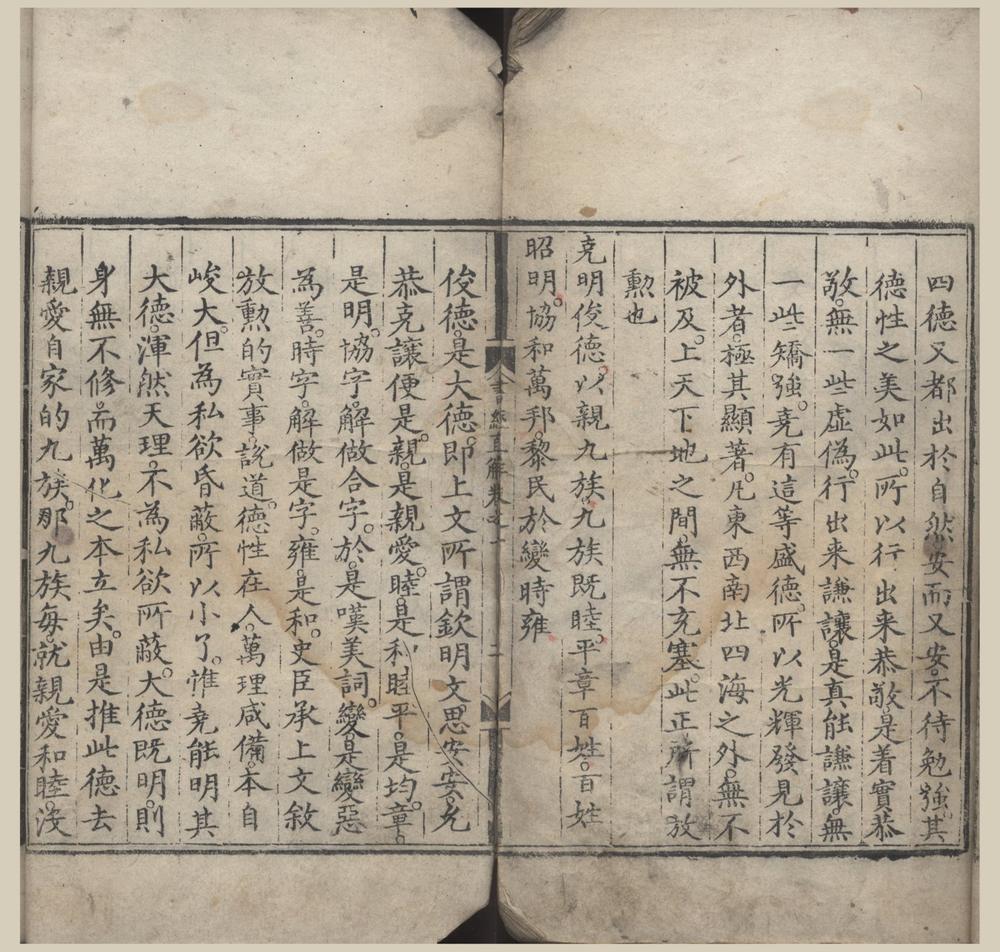 四德又都出於自然安而又安。不待勉强其
德性之美如此。所以行出来恭敬是着實恭
敬。無一些虛偽。行出来謙讓。是真能謙讓。無
一些矯强。尭有這等盛德。所以光輝發見於
外者。極其顯著。凡東西南北四海之外。無不
被及。上天下地之間。無不充塞。此正所謂放
勲也
克明俊德。以親九族。九族既睦。平章百姓。百姓
昭明。協和萬邦。黎民於變時雍
書經直解卷之一 二
俊德。是大德。即上文所謂欽明文。思安安。允
恭克讓便是。親。是親愛。睦。是和睦平。是均。章。
是明。協字。解做合字。於。是嘆美詞。變。是變惡
為善。時字。解做是字。雍。是和。史臣承上文敘
放勲的實事。說道。德性在人。萬理咸備。本自
峻大。但為私欲昏蔽。所以小了。惟尭能明其
大德。渾然天理。不為私欲所蔽。大德既明。則
身無不修。而萬化之本立矣。由是推此德去
親愛自家的九族。那九族每。就親愛和睦。没